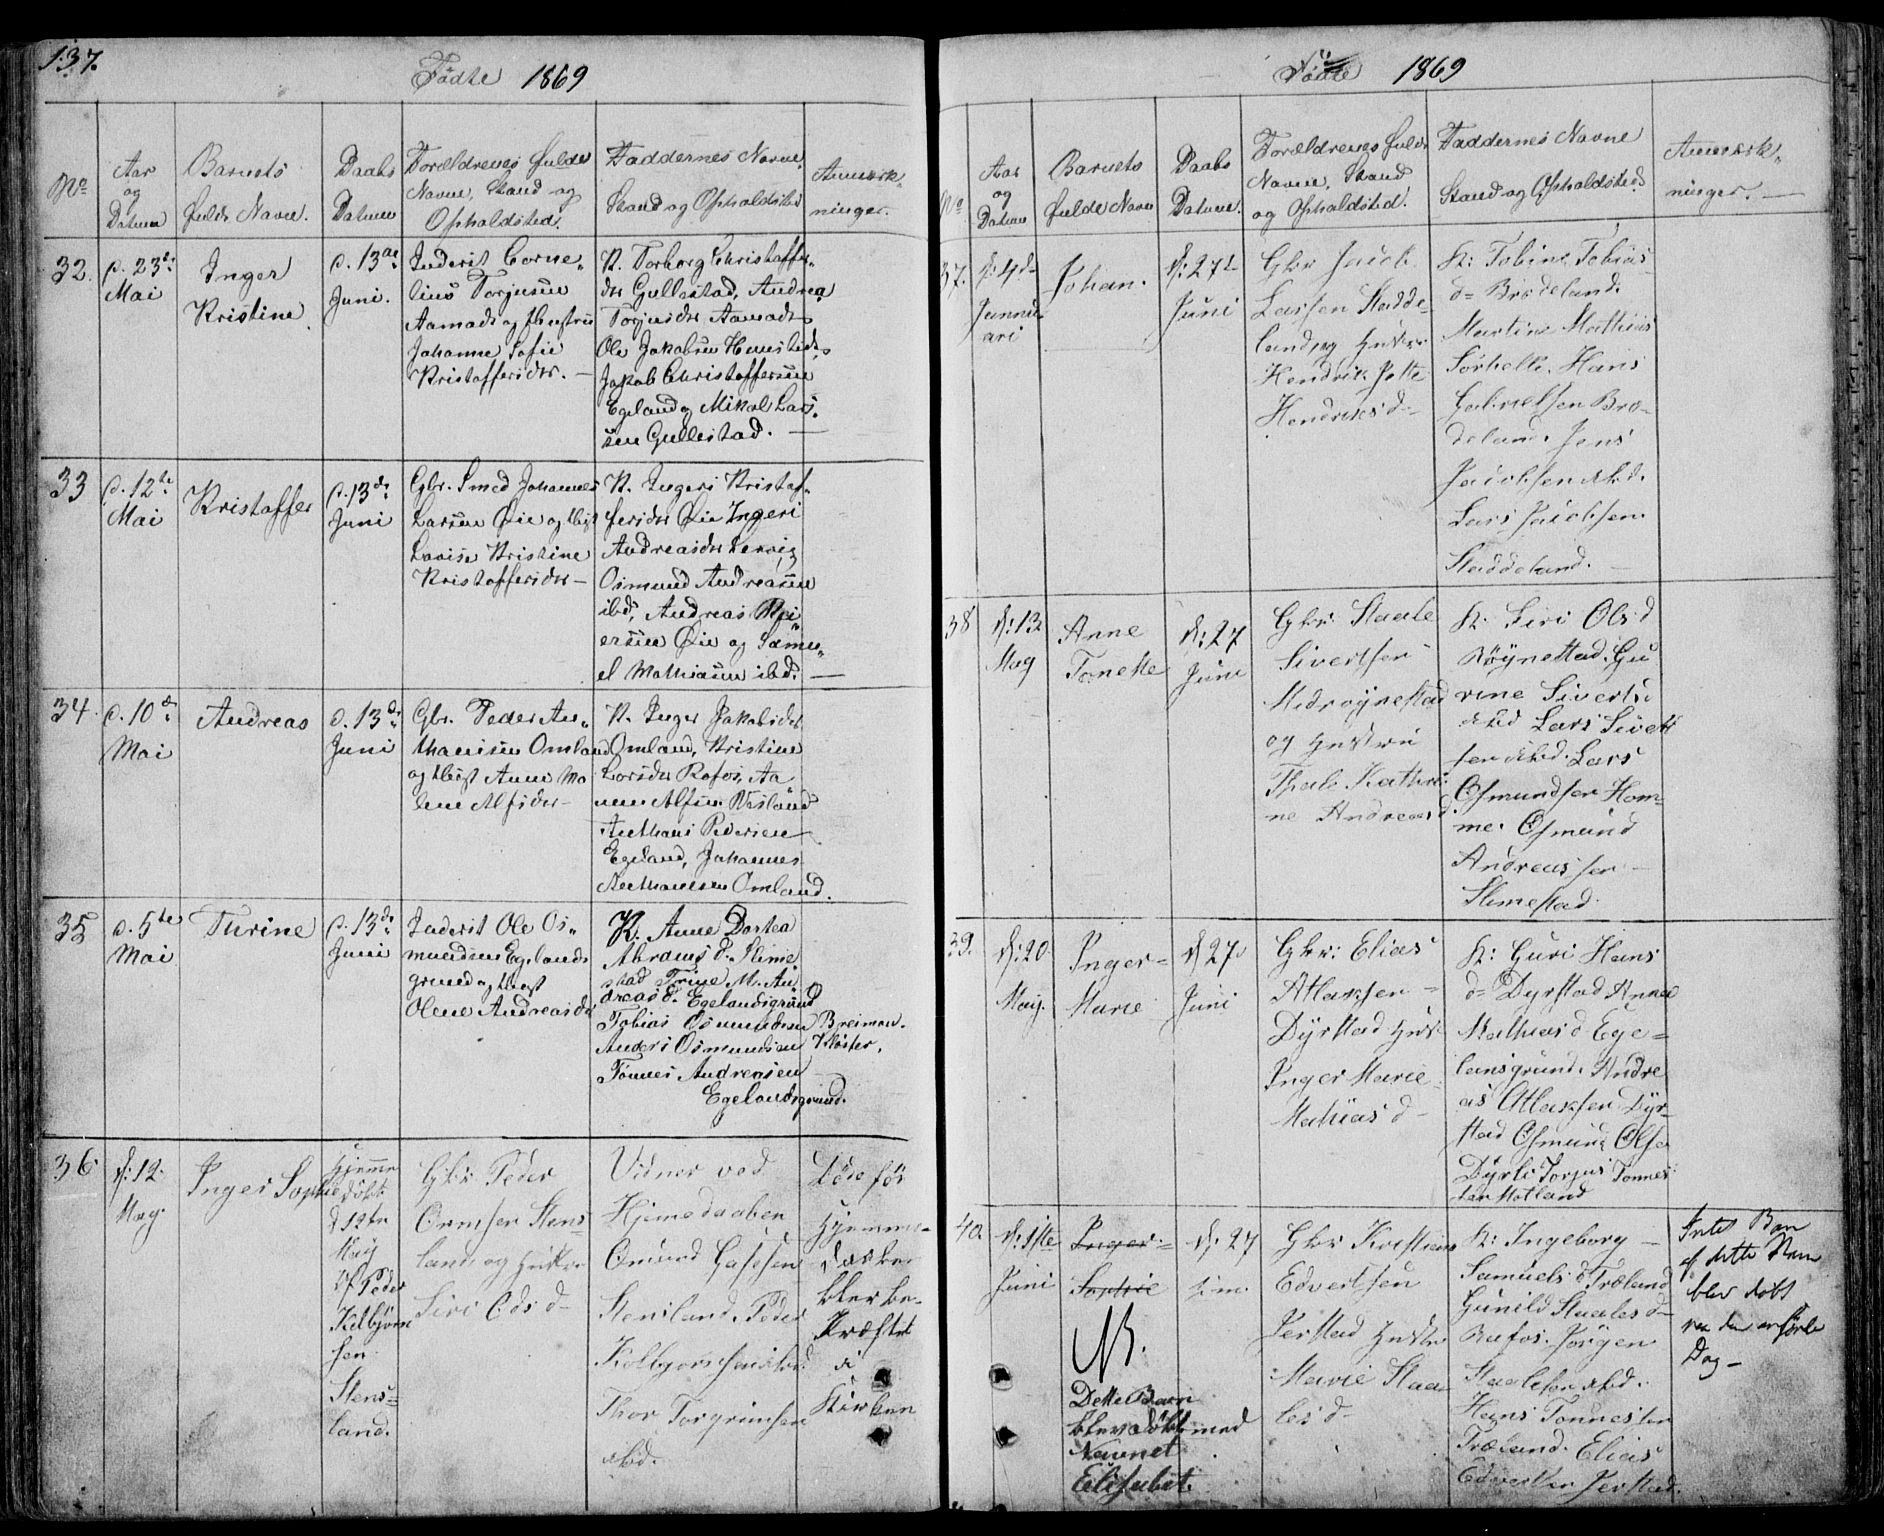 137.
Födte 1869
No
Aar
og
Datum
Barnets
fulde Navn.
Daabs
Datum
Forældrenes fulde
Navne, Stand og
Opholdsted.
Faddernes Navne,
Stand og Opholdsted
Anmærk-
ninger.
32.
d. 23de
Mai
Inger
Kristine
d. 13de
Juni.
Inderst Corne-
lius Torjusen
Aamodt og Hustru
Johanne Sofie
Kristoffersdtr. —
K. Torborg Christoffers-
dtr Gullestad, Andrea
Torjusdtr Aamodt
Ole Jakobsen
Jakob Christoffersen
Egeland og Mikal Lars-
sen Gullestad. —
33
d. 12te
Mai
Kristoffer
d. 13de
Juni
Gbr. Smed Johannes
Larsen Öie og Hust
Lovise Kristine
Kristoffersdtr —
K. Ingeri Kristof-
fersdtr Öie Ingeri
Andreasdtr Lervig
Osmund Andreasen
ibd, Andreas Rei-
ersen Öie og Samu-
el Mathiasen ibd. —
34.
d. 10de
Mai
Andreas
d. 13de
Juni
Gbr. Peder An-
thonisen Omland
og Hust Anne Ma
lene Alfsdtr —
K. Inger Jakobsdtr
Omland, Kristine
Larsdtr Rafos, Aa
nen Alfsen
Anthoni Pedersen
Egeland, Johannes
Anthonisen Omland.
35
d. 5te
Mai
Turine
d. 13de
Juni
Inderst Ole Os-
mundsen Egelands
grund og Hust
Olene Andreasdtr
K. Anne Dortea
Abrams d. Slime
stad Trine M. An
dreas d. Egelandsgrund
Tobias Osmundsen Breiman.
Anders Osmundsen Kloster.
Tönnes Andreasen
Egelandsgrund.
36
d: 12
May.
Inger Sophie
Hjemme
döbt
d 12te
May
af Peder
Kolbjörn
sen
Stens=
land.
Gbr Peder
Ormsen Stens
land og Hustru
Siri Eds d=
Vidner ved
Hjemedaaben
Omund
Stensland. Peder
Kolbjörnsen ibd.
Thor Torgrimsen
ibd.
Döde för
Hjemme-
daaben
blev be-
kræftet
i
Kirken
Födte 1869
No
Aar
og
Datum
Barnets
fulde Navn
Daabs
Datum.
Forældrenes fulde
Navne, Stand
og Opholdsted.
Faddernes Navne
Stand og Opholdsted
Anmærk-
ninger. —
37.
d: 4de
Janu-
ari
Johan.
d: 27de
Juni
Gbr Jacob
Larsen Stadde-
land og Hustru
Hendrik Jette
Hendriks d=
K: Tobine Tobias
d= Brödeland.
Martine Mathias
Hans
Gabrielsen Brö-
deland. Jens
Jacobsen ibd.
Lars Jacobsen
Staddeland. —
38
d: 13
May
Anne
Tonette
d: 27
Juni
Gbr: Staale
Sivertsen
Medröynestad
og Hustru
Kathri
ne Andreas d
K: Siri Ols d
Röynestad. Gu
rine Siverts
ibd Lars Sivert
sen ibd. Lars
Osmundsen Hom-
me. Osmund
Andreassen
Slimestad.
39.
d: 20
May.
Inger=
Marie
d 27
Juni
Gbr: Elias
Atlaksen =
Dyrstad Hust
Inger Marie
Mathias d=
K: Guri Hans
d= Dyrstad Anna
Mathias d Ege=
lansgrund. Andre
as Atlaksen Dyr-
stad Osmund Olsen
Dyrli Torjus Tönnes
sen Motland
40
d: 1ste
Juni
Inger=
Sophie
NB.
Dette Barn
blev döbt med
Navnet
Elisabet.
d: 27
Gbr Kristian
Edvertsen
Jerstad Hustru
Marie Staa
les d=
K: Ingeborg —
Samuels d Træland
Gunild Staales d=
Rafos. Jörgen
Staalesen ibd.
Hans Tönnessen
Træland. Elias
Edvertsen Jerstad.
Intet Barn
af dette Navn
blev döbt
paa den anförte
Dag —